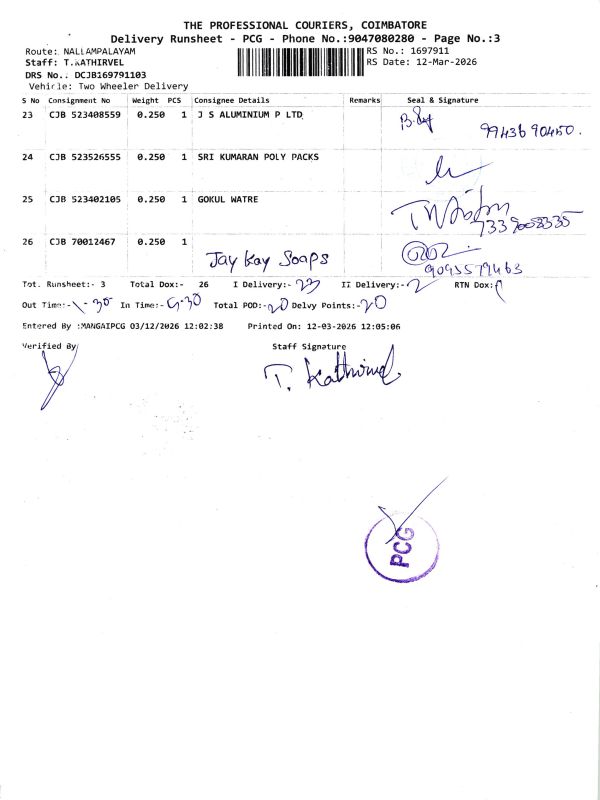 THE PROFESSIONAL COURIERS, COIMBATORE
Delivery Runsheet - PCG - Phone No.:9047080280 - Page No.:3
Route: NALLAMPALAYAM
RS No.: 1697911
Staff: T.KATHIRVEL
RS Date: 12-Mar-2026
DRS No.: DCJB169791103
Vehicle: Two Wheeler Delivery
S No Consignment No Weight PCS Consignee Details Remarks Seal & Signature
23 CJB 523408559 0.250 1 J S ALUMINIUM P LTD
9943690450.
24 CJB 523526555 0.250 1 SRI KUMARAN POLY PACKS
25 CJB 523402105 0.250 1 GOKUL WATRE
26 CJB 70012467 0.250 1
Jay Kay Soaps
9095579463
Tot. Runsheet:- 3 Total Dox:- 26 I Delivery:- 23 II Delivery:- 2 RTN Dox:- 1
Out Time:- 1-30 In Time:- 5-30 Total POD:- 20 Delvy Points:- 20
Entered By :MANGAIPCG 03/12/2026 12:02:38 Printed On: 12-03-2026 12:05:06
Verified By Staff Signature
T. Kathirvel
PCG